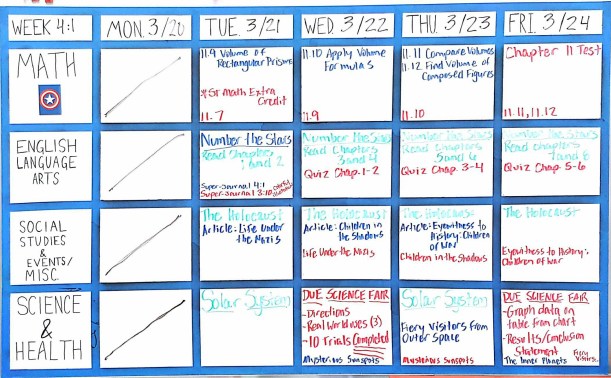 WEEK 4:1
MON. 3/20
TUE. 3/21
WED. 3/22
THU. 3/23
FRI. 3/24
MATH
11.9 Volume of
Rectangular Prisms
*5r Math Extra
Credit
11.7
11.10 Apply Volume
Formulas
11.9
11.11 Compare Volumes
11.12 Find Volume of
Composed Figures
11.10
Chapter 11 Test
11.11, 11.12
ENGLISH
LANGUAGE
ARTS
Number the Stars
Read Chapters
1 and 2
Super-Journal 4:1
Super-Journal 3:10
Number the Stars
Read Chapters
3 and 4
Quiz Chap. 1-2
Number the Stars
Read Chapters
5 and 6
Quiz Chap. 3-4
Number the Stars
Read Chapters
7 and 8
Quiz Chap. 5-6
SOCIAL
STUDIES
&
EVENTS/
MISC.
The Holocaust
Article: Life Under
the Nazis
The Holocaust
Article: Children in
the Shadows
Life Under the Nazis
The Holocaust
Article: Eyewitness to
History: Children
of War
Children in the Shadows
The Holocaust
Eyewitness to History:
Children of War
SCIENCE
&
HEALTH
Solar System
DUE SCIENCE FAIR
-Directions
-Real World uses (3)
-10 Trials Completed
Mysterious Sunspots
Solar System
Fiery Visitors from
Outer Space
Mysterious Sunspots
DUE SCIENCE FAIR
-Graph data on
table from chart
-Results/Conclusion
Statement
The Inner Planets
Fiery
Visitors...